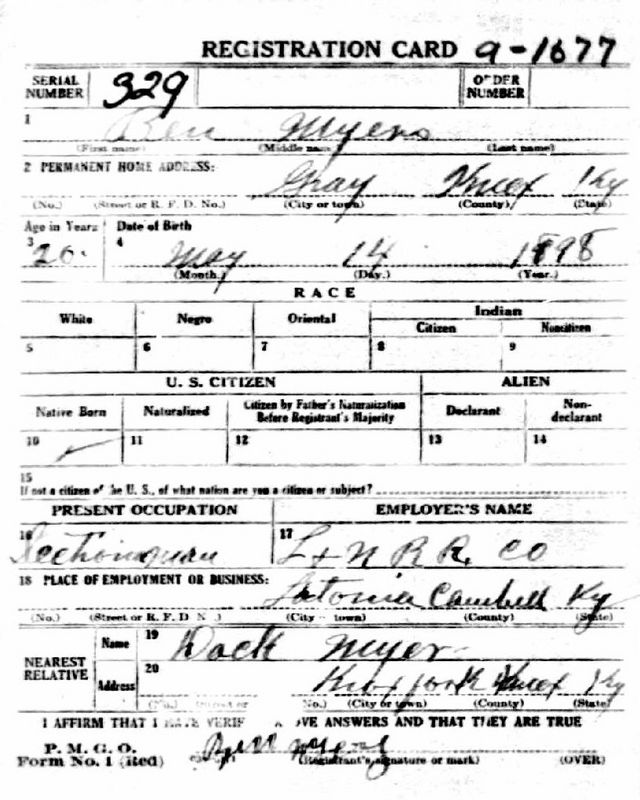 REGISTRATION CARD 9-1677
SERIAL NUMBER 329 ORDER NUMBER
1 Ben Myers
(First name) (Middle name) (Last name)
2 PERMANENT HOME ADDRESS: Gray Knox Ky
(No.) (Street or R. F. D. No.) (City or town) (County) (State)
Age in Years Date of Birth
3 20 4 May 14 1898
(Month.) (Day.) (Year.)
RACE
White Negro Oriental Indian
Citizen Noncitizen
5 6 7 8 9
U. S. CITIZEN ALIEN
Native Born Naturalized Citizen by Father's Naturalization Before Registrant's Majority Declarant Non-declarant
10 11 12 13 14
15
If not a citizen of the U. S., of what nation are you a citizen or subject?
PRESENT OCCUPATION EMPLOYER'S NAME
16 Sectionman 17 L + N R R. Co
18 PLACE OF EMPLOYMENT OR BUSINESS: Latonia Cambell Ky
(No.) (Street or R. F. D. No.) (City or town) (County) (State)
NEAREST RELATIVE Name 19 Dack Myers
Address 20 Knox Ky
(No.) (Street or No.) (City or town) (County) (State)
I AFFIRM THAT I HAVE VERIF OVE ANSWERS AND THAT THEY ARE TRUE
P. M. G. O.
Form No. 1 (Red) Ben Myers (Registrant's signature or mark) (OVER)